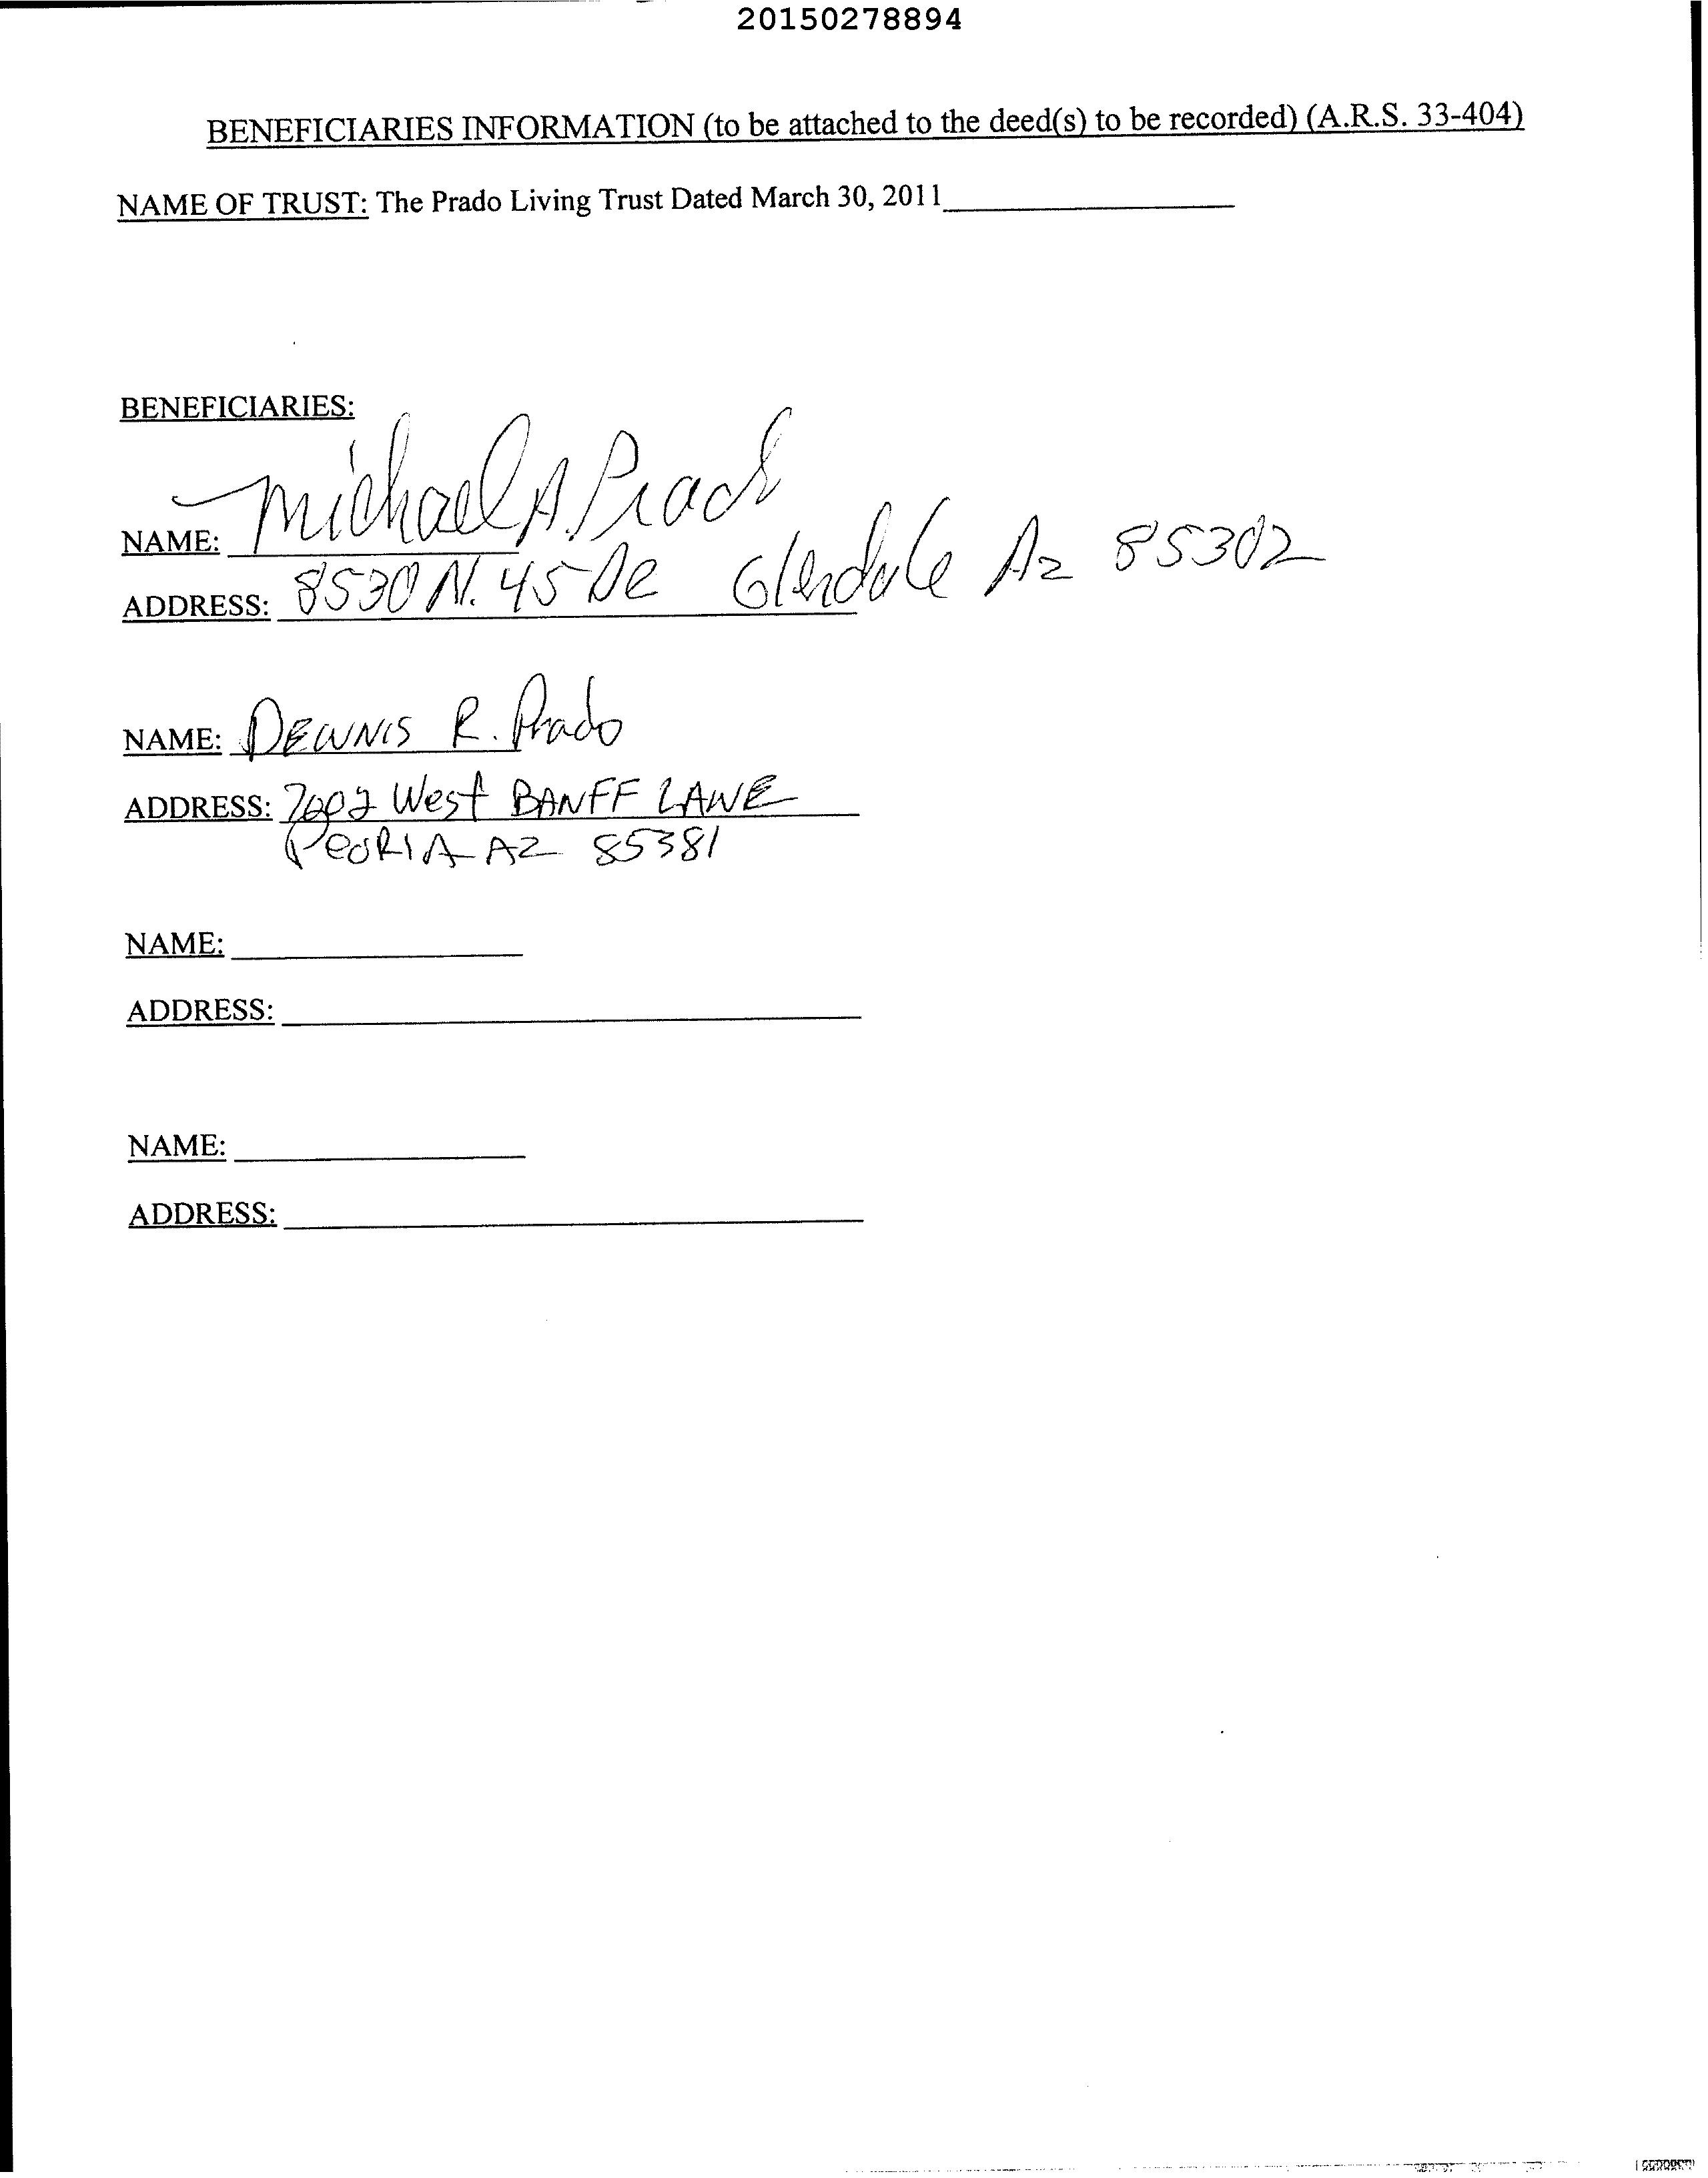 20150278894
BENEFICIARIES INFORMATION (to be attached to the deed(s) to be recorded) (A.R.S. 33-404)
NAME OF TRUST: The Prado Living Trust Dated March 30, 2011
BENEFICIARIES:
NAME: Michael A. Prado
ADDRESS: 8530 N. 45 Glendale Az 85302
NAME: DENNIS R. Prado
ADDRESS: 7602 West BANFF LANE
PEORIA AZ 85381
NAME:
ADDRESS:
NAME:
ADDRESS: